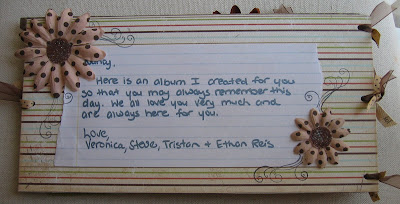 Here is an album I created for you
so that you may always remember this
day. We all love you very much and
are always here for you.
Love,
Veronica, Steve, Tristan & Ethan Reis